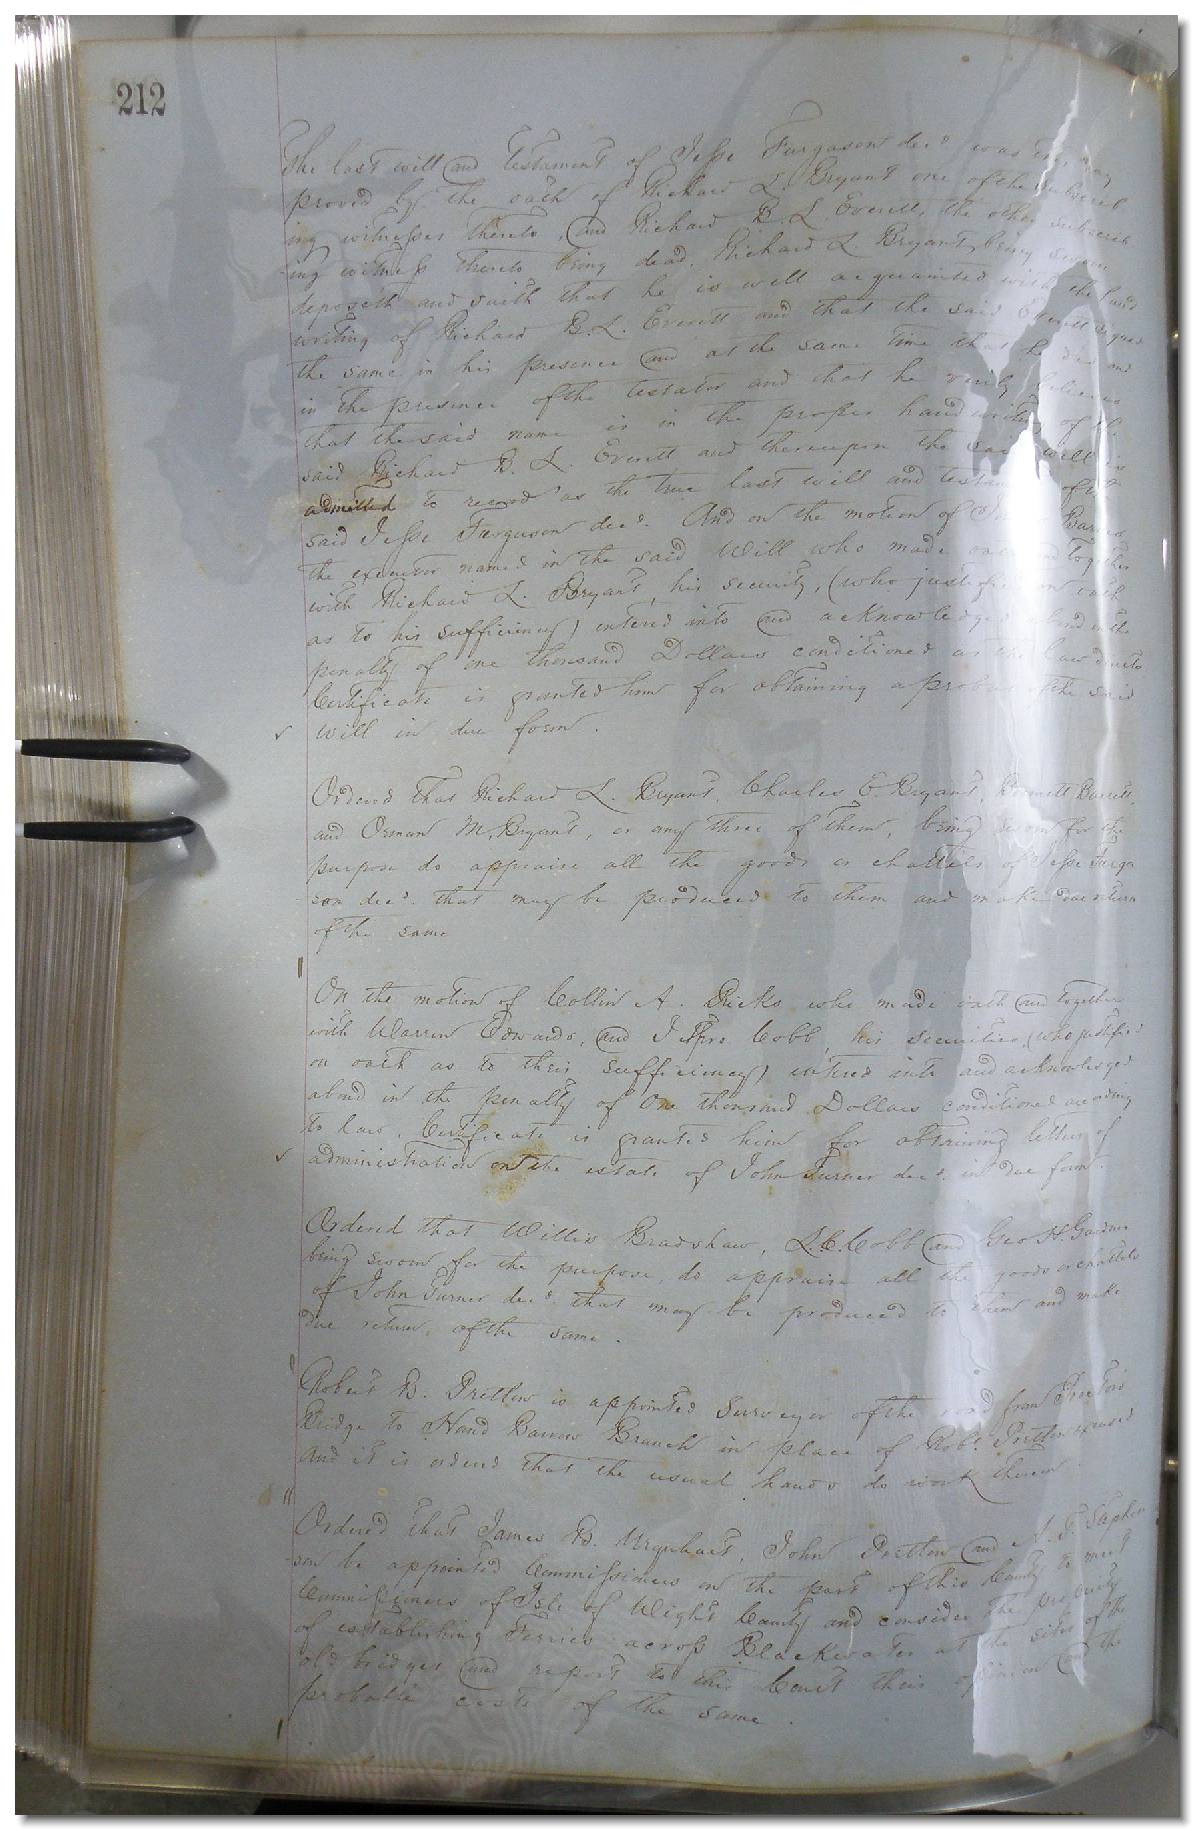 212
The last will and Testament of Jesse Furgason decd. was this day
proved by the oath of Richard L. Bryant one of the subscrib
ing witnesses thereto, and Richard B. L. Everett, the other subscrib
ing witness thereto being dead, Richard L. Bryant, being sworn
deposeth and saith that he is well acquainted with the hand
writing of Richard B. L. Everett and that the said Everett signed
the same in his presence and at the same time that he did and
in the presence of the testator and that he verily believes
that the said name is in the proper handwriting of the
said Richard B. L. Everett and thereupon the said will is
admitted to record as the true last will and testament of the
said Jesse Furguson decd. And on the motion of Barnes
the executor named in the said Will who made oath and together
with Richard L. Bryant, his security, (who justified on oath
as to his sufficiency) entered into and acknowledged a bond in the
penalty of one thousand Dollars conditioned as the law directs
Certificate is granted him for obtaining a probat of the said
will in due form.
Ordered that Richard L. Bryant, Charles E. Bryant, Barrett,
and Orman M. Bryant, or any three of them, being sworn for the
purpose do appraise all the goods or chattels of Jesse Furga
son decd. that may be produced to them and make due return
of the same
On the motion of Collin A. Ricks who made oath and together
with Warren Edwards, and Cobb, his securities, (who justified
on oath as to their sufficiency) entered into and acknowledged
a bond in the penalty of One thousand Dollars conditioned according
to law. Certificate is granted him for obtaining letters of
administration on the estate of John Turner decd. in due form.
Ordered that Willis Bradshaw, L. C. Cobb and Geo H. Gardner
being sworn for the purpose, do appraise all the goods or chattels
of John Turner decd. that may be produced to them and make
due return, of the same.
Robert B. Pretlow is appointed Surveyor of the road from
Bridge to Hand Barrow Branch in place of Robt. Pretlow excused
And it is ordered that the usual hands do work thereon.
Ordered that James B. Urquhart, John Pretlow and Stephen
son be appointed Commissioners on the part of this County to meet
Commissioners of Isle of Wight County and consider the propriety
of establishing Ferries across Blackwater at the sites of the
old bridges and report to this Court their opinion and the
probable costs of the same.